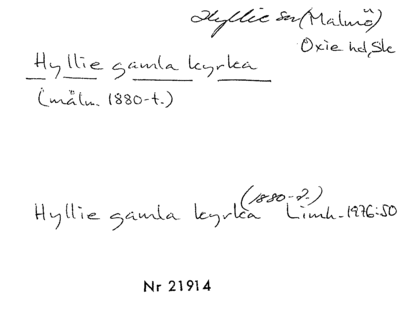 Hyllie sn (Malmö)
Oxie hd, Sk
Hyllie gamla kyrka
(måln. 1880-t.)
(1880-t.)
Hyllie gamla kyrka Limh. 1976:50
Nr 21914